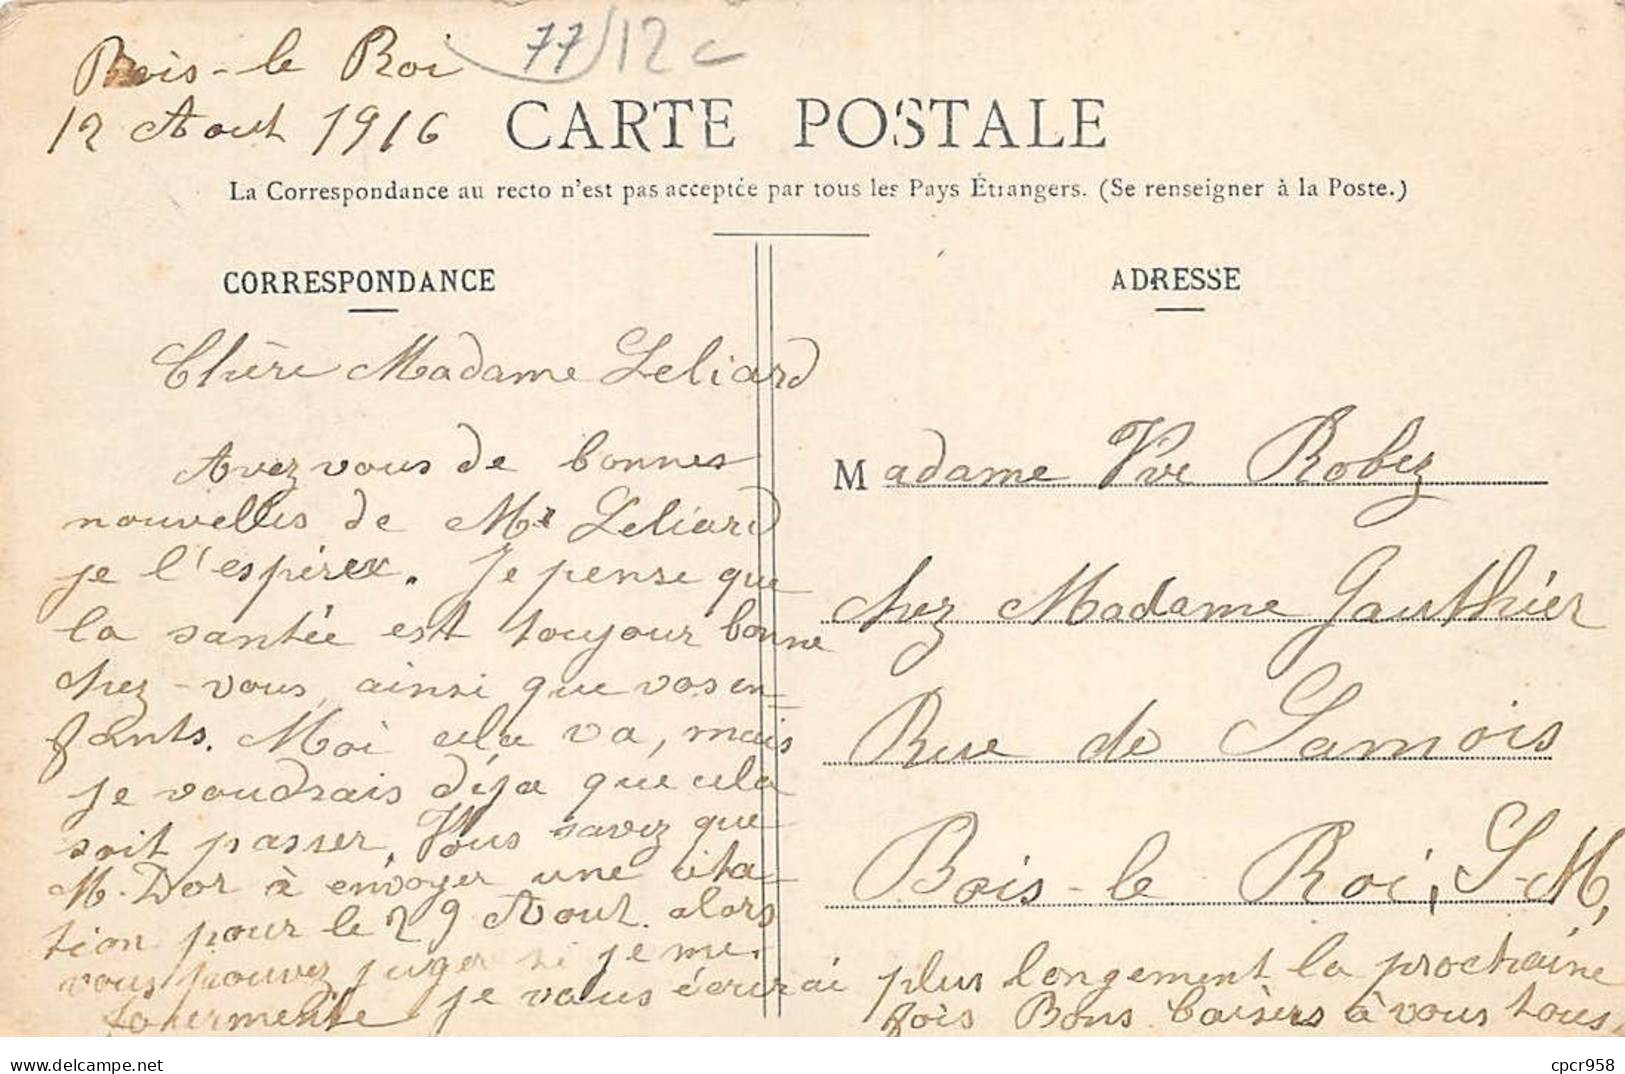 77/12c
Bois-le Roi
12 Aout 1916
CARTE POSTALE
La Correspondance au recto n'est pas acceptée par tous les Pays Étrangers. (Se renseigner à la Poste.)
CORRESPONDANCE
Chère Madame Leliard
Avez vous de bonnes
nouvelles de Mr Leliard
je l'espère. Je pense que
la santée est toujour bonne
chez-vous, ainsi que vos en-
fants. Moi cela va, mais
je voudrais déja que cela
soit passer. Vous savez que
M. Dor à envoyer une cita-
tion pour le 29 Aout. alors
vous pouvez juger si je me
tourmente je vous écrirai plus longement la prochaine
fois Bons baisers à vous tous
ADRESSE
Madame Vve Robez
chez Madame Gauthier
Rue de Samois
Bois-le Roi, S-M,
cpcr958